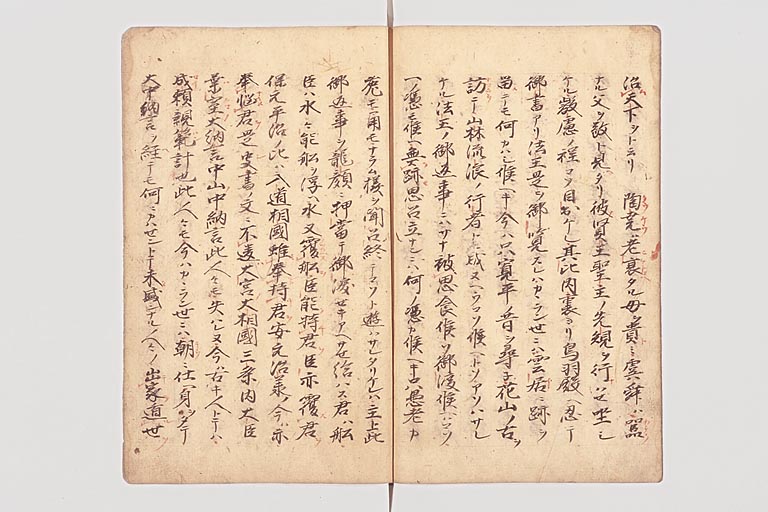 治天下ヲトニリ 陶尭老衰タル母ヲ貴ミ虞舜ハ嚚
ナル父ヲ敬ト見タリ彼賢王聖主ノ先規ヲ行ハセ坐シ
ケル叡慮ノ程コソ目出ケレ其比内裏ヨリ鳥羽殿ヘ忍テ
御書アリ法王是ヲ御覧スレハカヽラン世ニハ雲居ニ跡ヲ
留テモ何カハシ候ヘキ今ハ只寛平ノ昔ヲ尋子花山ノ古ヲ
訪テ山林流浪ノ行者トモ成ヌヘウコソ候ヘトソアソハサレ
ケル法王ノ御返事ニハサナ被思食候ソ御渡候ハコソ
一ノ憑モ候ヘ無跡思召立ナンニハ何ノ憑カ候ヘキ只愚老カ
兎モ角モナラム様ヲ聞召終テコソト遊ハサレタリケレハ主上此
御返事ヲ龍顔ニ押當テ御涙セキアヘサセ給ハス君ハ船
臣ハ水々能船ヲ浮ハ水又覆船臣能持君臣亦覆君
保元平治ノ比ハ入道相國雖奉持君安元治承ノ今ハ亦
奉悩君是史書ノ文ニ不違大宮大相國三条内大臣
葉室大納言中山中納言此人々モ失ヘレヌ今ハ古キ人トテハ
成頼親範計也此人々モ今ハカヽラン世ニハ朝ニ仕ヘ身ヲタテ
大中納言ヲ経テモ何ニカハセントテ未盛ナル人々ノ出家遁世